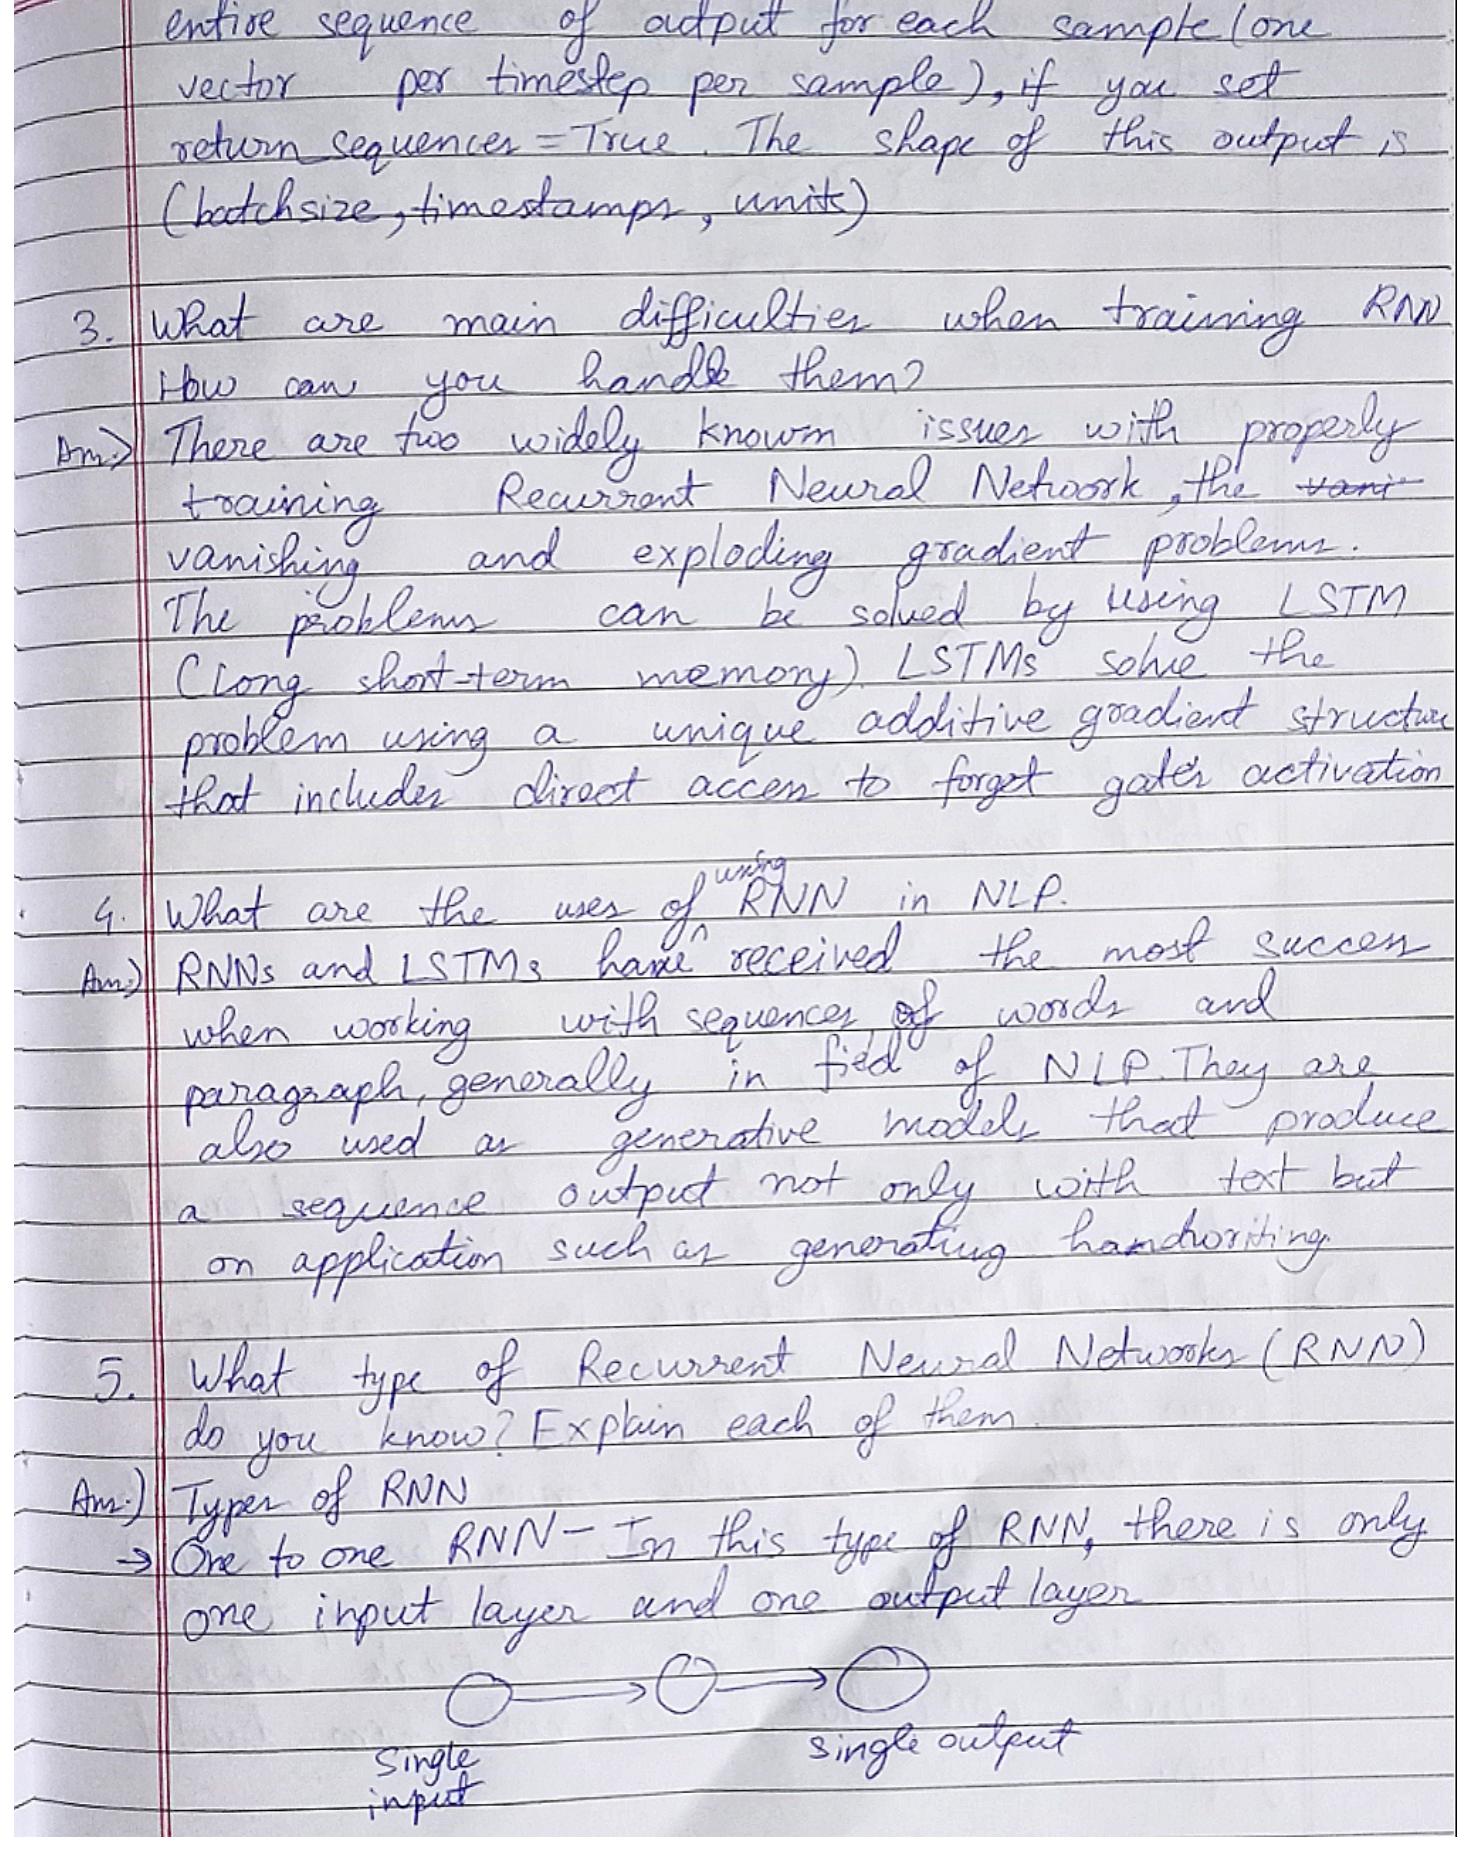 entire sequence of output for each sample (one
vector per timestep per sample), if you set
return_sequences = True. The shape of this output is
(batchsize, timestamps, units)
3. What are main difficulties when training RNN
How can you handle them?
Ans:) There are two widely known issues with properly
training Recurrent Neural Network, the vani
vanishing and exploding gradient problems.
The problems can be solved by using LSTM
(Long short-term memory). LSTMs solve the
problem using a unique additive gradient structure
that includes direct access to forget gate's activation
4. What are the uses of using RNN in NLP.
Ans:) RNNs and LSTMs have received the most success
when working with sequences of words and
paragraph, generally in field of NLP. They are
also used as generative models that produce
a sequence output not only with text but
on application such as generating handwriting.
5. What type of Recurrent Neural Networks (RNN)
do you know? Explain each of them.
Ans:) Types of RNN
→ One to one RNN - In this type of RNN, there is only
one input layer and one output layer
single output
Single
input